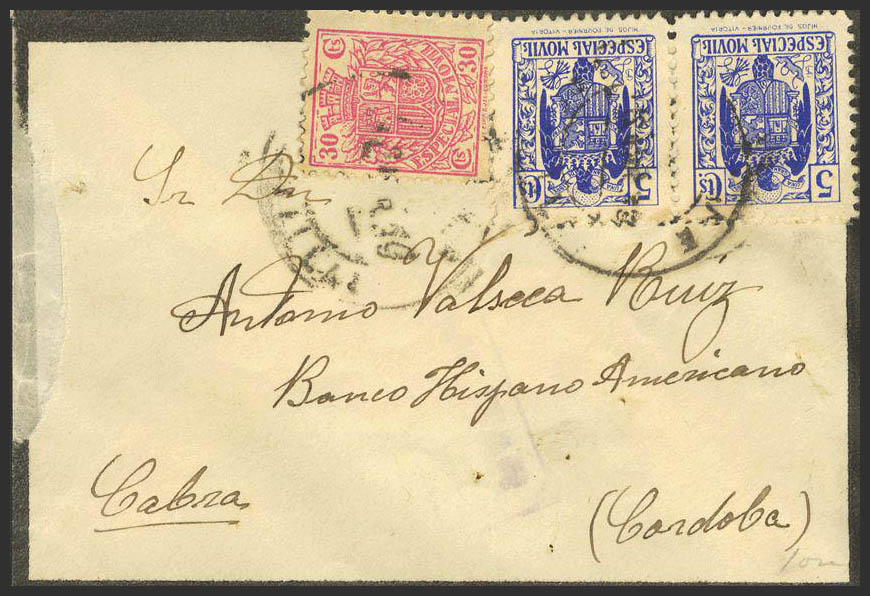 HIJOS DE FOURNIER - VITORIA
ESPECIAL MOVIL
5 Cts
HIJOS DE FOURNIER - VITORIA
ESPECIAL MOVIL
5 Cts
30 Cs
ESPECIAL MOVIL
30 Cs
Sr Dn
Antonio Valseca Ruiz
Banco Hispano Americano
Cabra
(Cordoba)